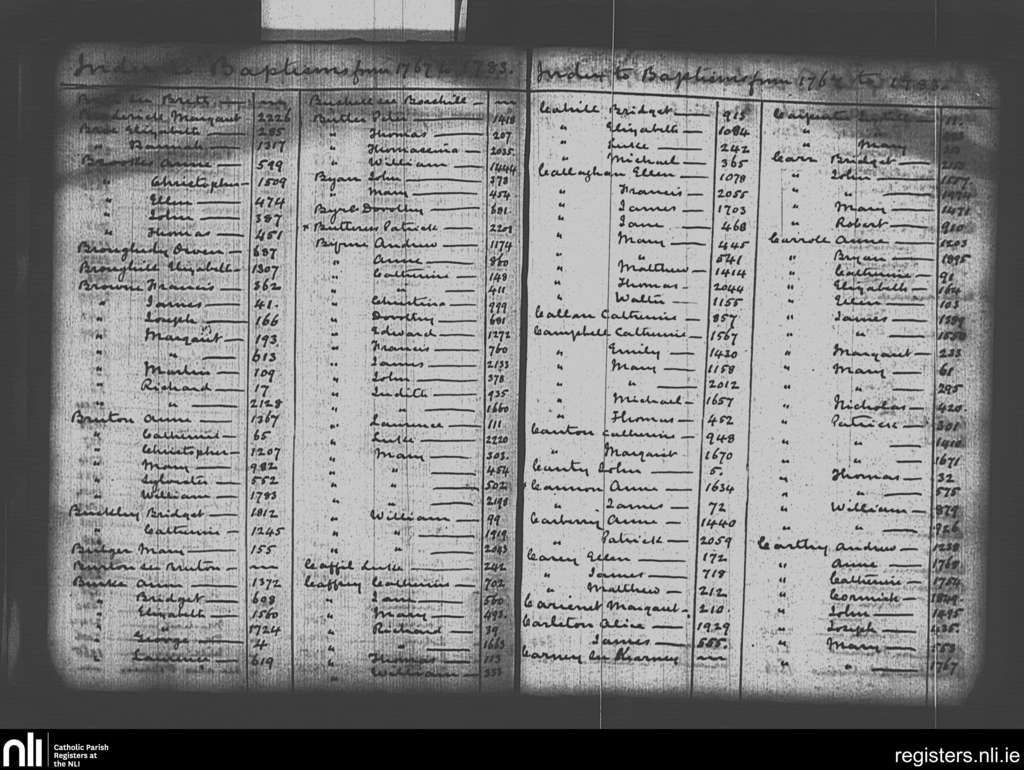 Index to Baptisms from 1767 to 1783.
Broderick Margaret 2226
Elizabeth 285
Hannah 1317
Brookes Anne 599
" Christopher 1509
" Ellen 474
" John 387
" Thomas 451
Broughedy Owen 687
Broughill Elizabeth 1307
Browne Francis 362
" James 41.
" Joseph 166
" Margaret 193.
" " 613
" Martin 109
" Richard 17
" " 2128
Bruton Anne 1367
" Catherine 65
" Christopher 1207
" Mary 982
" Sylvester 552
" William 1783
Buckley Bridget 1812
" Catherine 1245
Bulger Mary 155
Burton see Bruton
Burke Anne 1372
" Bridget 608
" Elizabeth 1560
" " 1724
" George 4
" Lawrence 619
Bushell see Boashill
Butler Peter 1418
" Thomas 207
" Thomasina 2035.
" William 1444
Byan John 373
" Mary 454
Byrl Dorothy 681
x Butteress Patrick 2201
Byrne Andrew 1174
" Anne 860
" Catherine 148
" " 411
" Christina 999
" Dorothy 681
" Edward 1272
" Francis 760
" James 2133
" John 378
" Judith 935
" " 1660
" Laurence 111
" Luke 2220
" Mary 303.
" " 454
" " 502
" " 2198
" William 99
" " 1919
" " 2043
Caffil Luke 242
Caffrey Catherine 702
" Jane 560
" Mary 493.
" Richard 39
" " 1663
" Thomas 113
" William 333
Index to Baptisms from 1767 to 1783.
Cahill Bridget 915
" Elizabeth 1084
" Luke 242
" Michael 365
Callaghan Ellen 1078
" Francis 2055
" James 1703
" Jane 468
" Mary 445
" " 541
" Matthew 1414
" Thomas 2044
" Walter 1155
Callan Catherine 857
Campbell Catherine 1567
" Emily 1430
" Mary 1158
" " 2012
" Michael 1657
" Thomas 452
Canton Catherine 948
" Margaret 1670
Canty John 5.
Cannon Anne 1634
" James 72
Carberry Anne 1440
" Patrick 2059
Carey Ellen 172
" James 718
" Matthew 212
Carienet Margaret 210.
Carleton Alice 1929
" James 555.
Carney see Kearney
Carpenter
" Mary
Carr Bridget
" John 1557
" "
" Mary 1471
" Robert 910
Carroll Anne 1203
" Bryan 1895
" Catherine 91
" Elizabeth 164
" Ellen 103
" James 1389
" " 1530
" Margaret 233
" Mary 61
" " 295
" Nicholas 420
" Patrick 301
" " 1410
" " 1671
" Thomas 32
" " 575
" William 879
" " 926
Carthy Andrew 1238
" Anne 1768
" Catherine 1754
" Cormick 1849
" John 1495
" Joseph 435.
" Mary 553
" " 1767
nli
Catholic Parish
Registers at
the NLI
registers.nli.ie